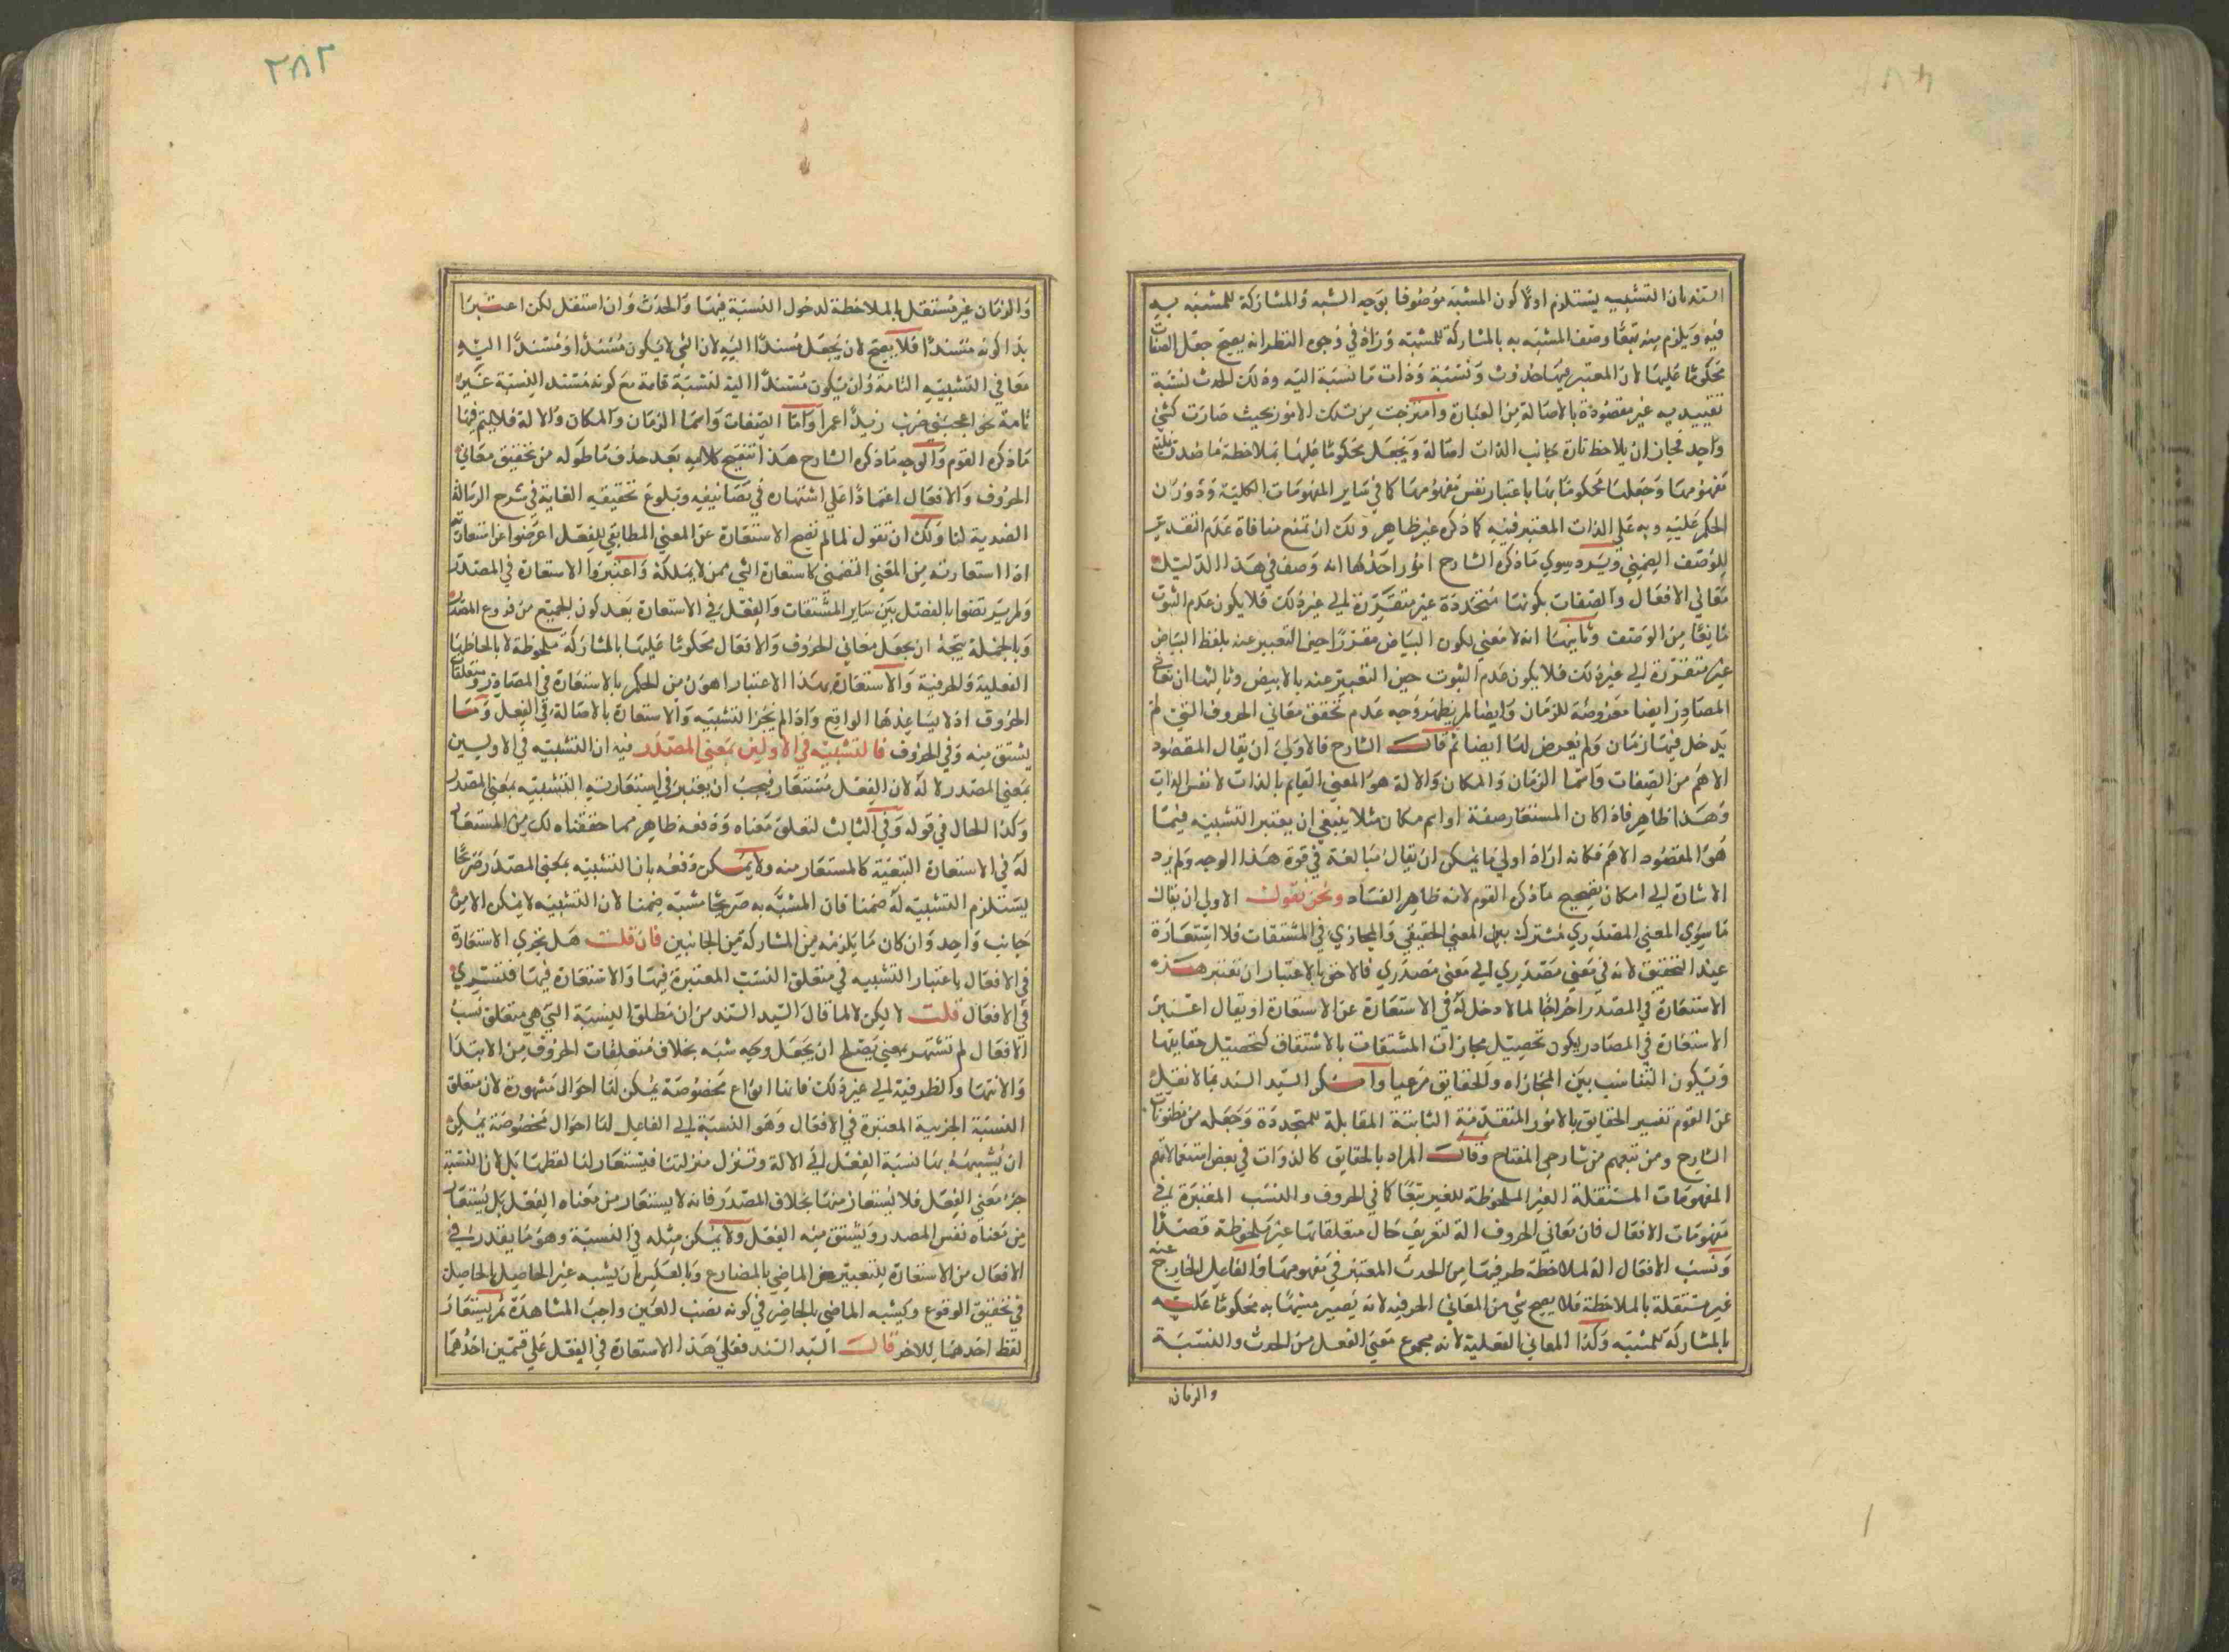 السند بان التشبيه يستلزم اولا كون المشبه موصوفا بوجه الشبه والمشاركة للمشبه به
فيه ويلزم منه تبعا وصف المشبه به بالمشاركة للمشبه وزاد في وجوه النظر انه يصح جعل الصفات
محكوما عليها لان المعتبر فيها حدوث ونسبة وذات ما نسبة اليه وذلك الحدث نسبة
تقييدية غير مقصودة بالاصالة من العبارة وامتزجت من تلك الامور بحيث صارت كشئ
واحد فجاز ان يلاحظ تارة بجانب الذات اصالة ويجعل محكوما عليها بملاحظة ما صدقت عليه
مفهومها وجعلها محكوما بها باعتبار نفس مفهومها كما في ساير المفهومات الكلية ودوران
الحكم عليه وبه على الذات المعتبر فيه كما ذكره غير ظاهر ولك ان تمنع منافاة عدم التقدير
للوصف الضمني ويرد سوي ما ذكره الشارح امور احدها انه وصف في هذا الدليل
معاني الافعال والصفات بكونها متجددة غير متقررة الي غير ذلك فلا يكون عدم الثبوت
مانعا من الوصف وثانيها انه لا معني لكون البياض مقررا حين التعبير عنه بلفظ البياض
غير متقررة الي غير ذلك فلا يكون عدم الثبوت حين التعبير عنه بالابيض وثالثها ان معاني
المصادر ايضا معروضة للزمان وايضا لم يظهر وجه عدم تحقق معاني الحروف التي لم
يدخل فيها زمان ولم يعرض لها ايضا ثم قال الشارح فالاولي ان يقال المقصود
الاهم من الصفات واسما الزمان والمكان والالة هو المعني القايم بالذات لا نفس الذات
وهذا ظاهر فاذا كان المستعار صفة او اسم مكان مثلا ينبغي ان يعتبر التشبيه فيما
هو المقصود الاهم فكانه اراد اولي ما يمكن ان يقال مبالغة في قوة هذا الوجه ولم يرد
الاشارة الي امكان تصحيح ما ذكره القوم لانه ظاهر الفساد ونحن نقول الاولي ان يقال
ما سوي المعني المصدري مشترك بين المعني الحقيقي والمجازي في المشتقات فلا استعارة
عند التحقيق لانه في معني مصدري الي معني مصدري فالاحق بالاعتبار ان تعتبر هذه
الاستعارة في المصدر اخراجا لما لا دخل له في الاستعارة عن الاستعارة او يقال اعتبر
الاستعارة في المصادر ليكون تحصيل مجازات المشتقات بالاشتقاق كتحصيل حقايقها
ويكون التناسب بين المجازاه والحقايق مرعيا وانكر السيد السند بما لا نقيل
عن القوم تفسير الحقايق بالامور المتقدمة الثابتة المقابلة للمتجددة وجعله من مظنونات
الشارح ومن تبعهم من شارحي المفتاح وقال المراد بالحقايق كالذوات في بعض استعمالاتهم
المفهومات المستقلة الغير الملحوظة للغير تبعا كما في الحروف والنسب المعتبرة في
مفهومات الافعال فان معاني الحروف الة لتعريف حال متعلقاتها غير ملحوظة قصدا
ونسب الافعال الة لملاحظة طرفيها من الحدث المعتبر في مفهومها والفاعل الخارج عنه
غير مستقلة بالملاحظة فلا يصح شي من المعاني الحرفية لانه يصير مشبها به محكوما عليه
بالمشاركة للمشبه وكذا المعاني الفعلية لانه مجموع معني الفعل من الحدث والنسبة
والزمان
٢٨٢
والزمان غير مستقل بالملاحظة لدخول النسبة فيها والحدث وان استقل لكن اعتبر
بدا كونه مسندا فلا يصح لان يجعل مسندا اليه لان الشي لا يكون مسندا او مسندا اليه
معا في التشبيه التامة وان يكون مسندا اليه لنسبة تامة مع كونه مسند النسبة غير
تامة نحو اعجبني ضرب زيد عمرا واما الصفات واسما الزمان والمكان والالة فلا يتم فيها
ما ذكره القوم والوجه ما ذكره الشارح هذا تنقيح كلامه بعد حذف ما طوله من تحقيق معاني
الحروف والافعال اعتمادا علي اشتهاره في تصانيفه وبلوغ تحقيقه الغاية في شرح الرسالة
العضدية لنا ولك ان تقول لما لم تصح الاستعارة عن المعني المطابقي للفعل اعرضوا عن استعارته
اذا استعارته من المعني التضمني كاستعارة الشي ممن لا يملكه واعتبروا الاستعارة في المصدر
ولم يرتضوا بالفصل بين ساير المشتقات والفعل في الاستعارة بعد كون الجميع من فروع المصدر
وبالجملة يتجه ان يجعل معاني الحروف والافعال محكوما عليها بالمشاركة ملحوظة لا بالحاظها
الفعلية والحرفية والاستعارة بهذا الاعتبار اهون من الحكم بالاستعارة في المصادر ومتعلقات
الحروف اذ لا يساعدها الواقع واذا لم يجز التشبيه والاستعارة بالاصالة في الفعل وما
يشتق منه وفي الحروف فالتشبيه في الاولين بمعني المصدر فيه ان التشبيه في الاولين
بمعني المصدر لا له لان الفعل مستعار فيجب ان يعتبر في استعارته التشبيه بمعني المصدر
وكذا الحال في قوله وفي الثالث لتعلق معناه ودفعه ظاهر مما حققناه لك من المستعار
له في الاستعارة التبعية كالمستعار منه ولا يمكن دفعه بان التشبيه بمعني المصدر صريحا
يستلزم التشبيه له ضمنا فان المشبه به صريحا مشبه ضمنا لان التشبيه لا يمكن الا من
جانب واحد وان كان ما يلزمه من المشاركة من الجانبين فان قلت هل تجري الاستعارة
في الافعال باعتبار التشبيه في متعلق النسب المعتبرة فيها والاستعارة فيها فتسري
في الافعال قلت لا يمكن لا لما قال السيد السند من ان مطلق النسبة التي هي متعلق نسب
الافعال لم تشتهر بمعني يصلح ان يجعل وجه شبه بخلاف متعلقات الحروف من الابتدا
والانتها والظرفية الي غير ذلك فانها انواع مخصوصة يمكن لها احوال مشهورة لان متعلق
النسبة الجزيية المعتبرة في الافعال وهو النسبة الي الفاعل لها احوال مخصوصة يمكن
ان يشبه بها نسبة الفعل الي الالة وتنزل منزلتها فيستعار لها لفظها بل لان النسبة
جزء معني الفعل فلا يستعار منها بخلاف المصدر فانه لا يستعار من معناه الفعل بل يستعار
من معناه نفس المصدر ويشتق منه الفعل ولا يمكن مثله في النسبة وهو ما يقدر في
الافعال من الاستعارة للتعبير عن الماضي بالمضارع وبالعكس بان يشبه غير الحاصل بالحاصل
في تحقيق الوقوع ويشبه الماضي بالحاضر في كونه نصب العين واجب المشاهدة ثم يستعار
لفظ احدهما للاخر قال السيد السند فعلي هذا الاستعارة في الفعل علي قسمين احدهما